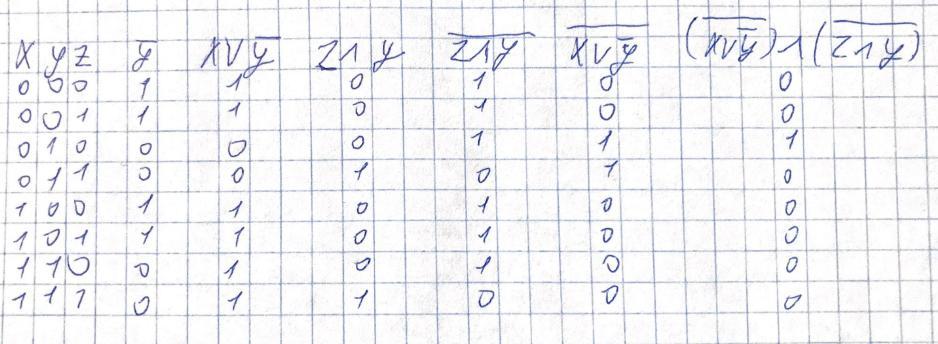 x y z ȳ x∨ȳ z∧y z∧y̅ x∨ȳ̅ (x∨ȳ̅)∧(z∧y̅)
0 0 0 1 1 0 1 0 0
0 0 1 1 1 0 1 0 0
0 1 0 0 0 0 1 1 1
0 1 1 0 0 1 0 1 0
1 0 0 1 1 0 1 0 0
1 0 1 1 1 0 1 0 0
1 1 0 0 1 0 1 0 0
1 1 1 0 1 1 0 0 0